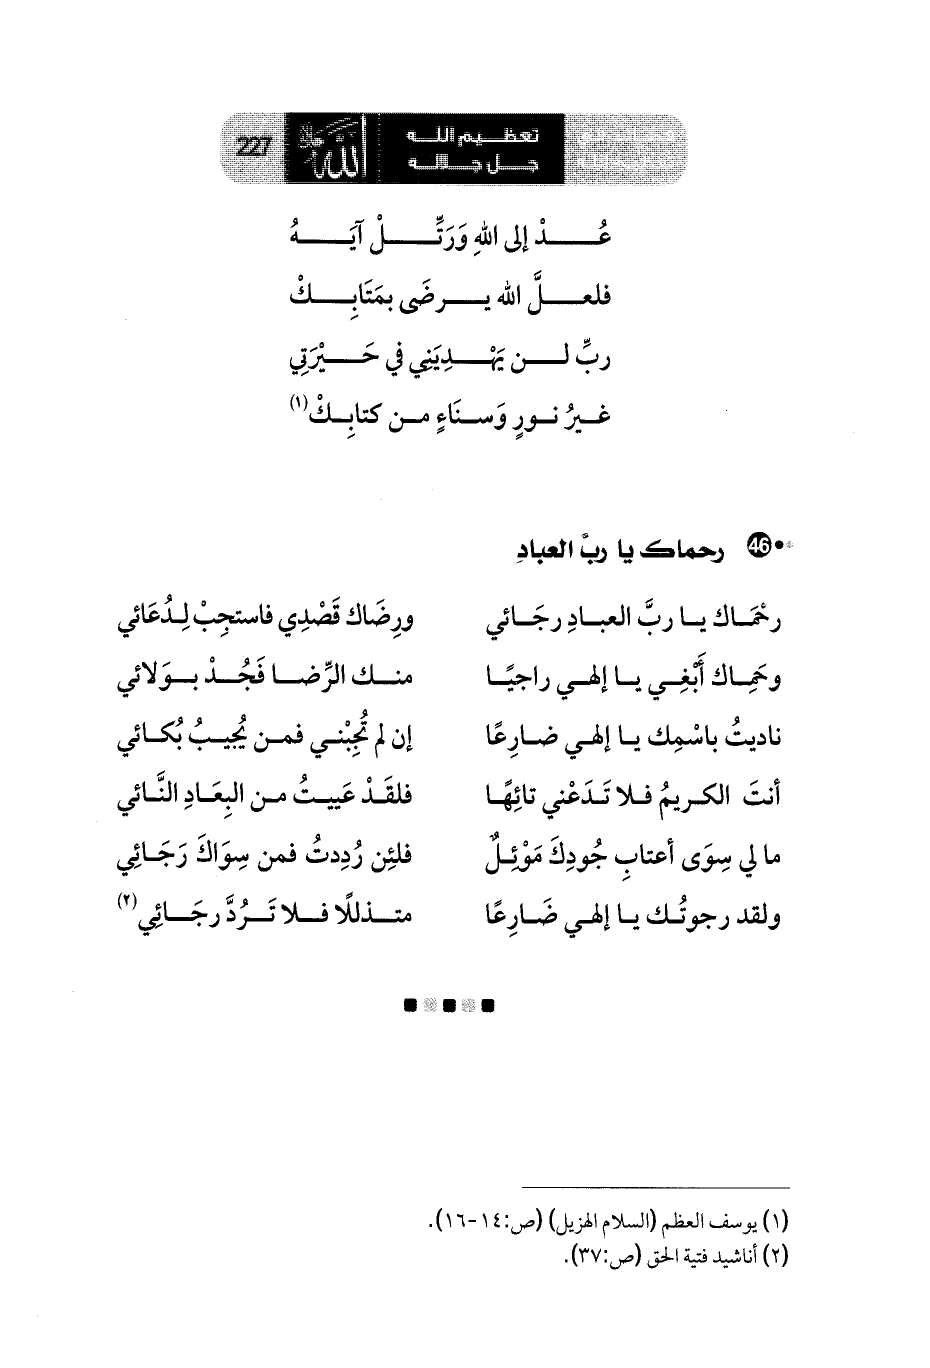 227
تعظيم الله
جل جلاله
عُذْ إلى اللهِ وَرَتِّلْ آيَهُ
فلعلَّ الله يرضَى بمَتَابِكْ
ربِّ لن يَهْدِيَنِي في حَيْرَتِي
غيرُ نورٍ وَسنَاءٍ من كتابِكْ(١)
46 رحماك يا ربَّ العبادِ
رحْمَاك يا ربَّ العبادِ رجَائي ورِضَاك قَصْدِي فاستجِبْ لِدُعَائي
وحَمِاك أَبْغِي يا إلهي راجيًا منك الرِّضا فَجُدْ بوَلائي
ناديتُ باسْمِك يا إلهي ضارِعًا إن لم تُجِبْني فمن يُجيبُ بُكائي
أنتَ الكريمُ فلا تَدَعْني تائِهًا فلقَدْ عَييتُ من البِعَادِ النَّائي
ما لي سِوَى أعتابِ جُودِكَ مَوْئِلٌ فلئِن رُدِدتُ فمن سِوَاكَ رَجَائِي
ولقد رجوتُك يا إلهي ضَارِعًا متذللًا فلا تَرُدَّ رجَائِي(٢)
(١) يوسف العظم (السلام الهزيل) (ص:١٤-١٦).
(٢) أناشيد فتية الحق (ص:٣٧).